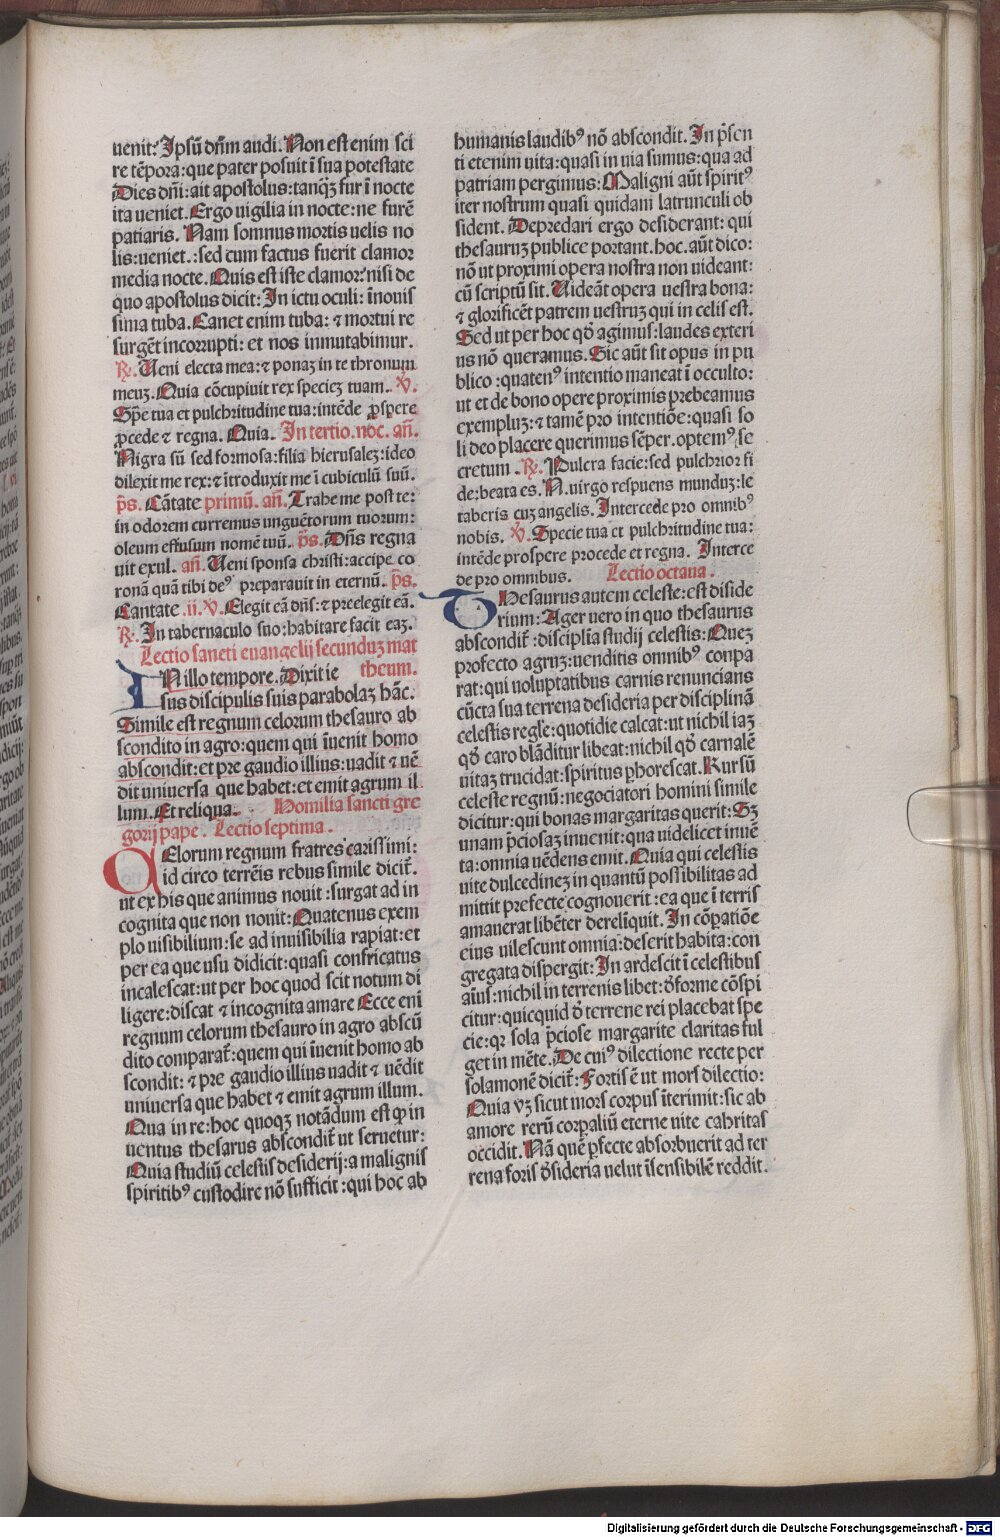 uenit? Ipsū dn̄m audi. Non est enim sci
re tēpora: que pater posuit ī sua potestate
Dies dn̄i: ait apostolus: tanqȝ fur ī nocte
ita ueniet. Ergo uigilia in nocte: ne furē
patiaris. Nam somnus mortis uelis no
lis: ueniet.: sed cum factus fuerit clamor
media nocte. Quis est iste clamor? nisi de
quo apostolus dicit: In ictu oculi: īnouis
sima tuba. Canet enim tuba: ⁊ mortui re
surgēt incorrupti: et nos inmutabimur.
℞. Ueni electa mea: ⁊ ponaȝ in te thronum
meuȝ. Quia cōcupiuit rex specieȝ tuam. ℣.
Spē tua et pulchritudine tua: intēde ꝓspere
ꝓcede ⁊ regna. Quia. In tertio. noc. an̄.
Nigra sū sed formosa: filia hierusaleȝ: ideo
dilexit me rex: ⁊ ītroduxit me ī cubiculū suū.
ps̄. Cātate primū. an̄. Trahe me post te:
in odorem curremus unguētorum tuorum:
oleum effusum nomē tuū. ps̄. Dn̄s regna
uit exul. an̄. Ueni sponsa christi: accipe co
ronā quā tibi deꝰ preparauit in eternū. ps̄.
Cantate .ii. ℣. Elegit eā dn̄s: ⁊ preelegit eā.
℞. In tabernaculo suo: habitare facit eaȝ.
Lectio sancti euangelij secunduȝ mat
theum.
IN illo tempore. Dixit ie
sus discipulis suis parabolaȝ hāc.
Simile est regnum celorum thesauro ab
scondito in agro: quem qui īuenit homo
abscondit: et pre gaudio illius: uadit ⁊ uē
dit uniuersa que habet: et emit agrum il
lum. Et reliqua. Homilia sancti gre
gorij pape. Lectio septima.
CElorum regnum fratres carissimi:
id circo terrēis rebus simile dicit᷑.
ut ex his que animus nouit: surgat ad in
cognita que non nouit: Quatenus exem
plo uisibilium: se ad inuisibilia rapiat: et
per ea que usu didicit: quasi confricatus
incalescat: ut per hoc quod scit notum di
ligere: discat ⁊ incognita amare Ecce eni
regnum celorum thesauro in agro abscū
dito comparat᷑: quem qui īuenit homo ab
scondit: ⁊ pre gaudio illius uadit ⁊ uēdit
uniuersa que habet ⁊ emit agrum illum.
Qua in re: hoc quoqȝ notādum est ꝙ in
uentus thesarus abscondit᷑ ut seruetur:
Quia studiū celestis desiderij: a malignis
spiritibꝰ custodire nō sufficit: qui hoc ab
humanis laudibꝰ nō abscondit. In p̄sen
ti etenim uita: quasi in uia sumus: qua ad
patriam pergimus: Maligni aūt spiritꝰ
iter nostrum quasi quidam latrunculi ob
sident. Depredari ergo desiderant: qui
thesauruȝ publice portant. hoc. aūt dico:
nō ut proximi opera nostra non uideant:
cū scriptū sit. Uideāt opera uestra bona:
⁊ glorificēt patrem uestruȝ qui in celis est.
Sed ut per hoc qd̄ agimus: laudes exteri
us nō queramus. Sic aūt sit opus in pu
blico: quatenꝰ intentio maneat ī occulto:
ut et de bono opere proximis prebeamus
exempluȝ: ⁊ tamē pro intentiōe: quasi so
li deo placere querimus sēper. optemꝰ se
cretum. ℞. Pulcra facie: sed pulchrior fi
de: beata es. N. uirgo respuens munduȝ: le
taberis cuȝ angelis. Intercede pro omnibꝰ
nobis. ℣. Specie tua et pulchritudine tua:
intēde prospere procede et regna. Interce
de pro omnibus. Lectio octaua.
THesaurus autem celeste: est diside
rium: Ager uero in quo thesaurus
abscondit᷑: disciplīa studij celestis: Queȝ
profecto agruȝ: uenditis omnibꝰ conpa
rat: qui uoluptatibus carnis renuncians
cūcta sua terrena desideria per disciplinā
celestis regl̄e: quotidie calcat: ut nichil iaȝ
qd̄ caro blāditur libeat: nichil qd̄ carnalē
uitaȝ trucidat: spiritus ꝑhorescat. Kursū
celeste regnū: negociatori homini simile
dicitur: qui bonas margaritas querit: Sȝ
unam p̄ciosaȝ inuenit: qua uidelicet inuē
ta: omnia uēdens emit. Quia qui celestis
uite dulcedineȝ in quantū possibilitas ad
mittit prefecte cognouerit: ea que ī terris
amauerat libēter derelīquit. In cōpatiōe
eius uilescunt omnia: deserit habita: con
gregata dispergit: In ardescit ī celestibus
aīus: nichil in terrenis libet: d̄forme cōspi
citur: quicquid d̄ terrene rei placebat spe
cie: qꝛ sola p̄ciose margarite claritas ful
get in mēte. De cuiꝰ dilectione recte per
solamonē dicit᷑: Fortis ē ut mors dilectio:
Quia vȝ sicut mors corpus īterimit: sic ab
amore rerū corpaliū eterne uite cahritas
occidit. Nā quē ꝑfecte absorbuerit ad ter
rena foris d̄sideria uelut īsensibilē reddit.
Digitalisierung gefördert durch die Deutsche Forschungsgemeinschaft - DFG